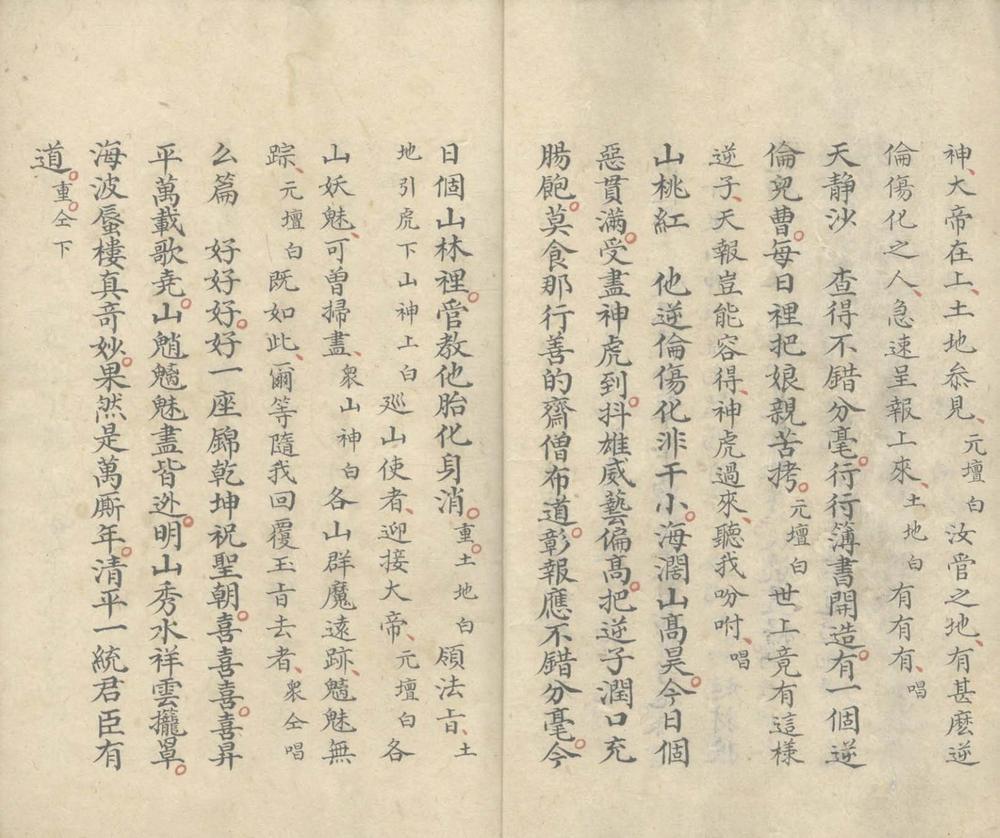 神、大帝在上、土地叅見、元壇白汝管之地、有甚麽逆
倫傷化之人、急速呈報上來、土地白有有有、唱
天静沙　查得不錯分毫。行行簿書開造。有一個逆
倫兒曹。每日裡把娘親苦拷。元壇白世上竟有這樣
逆子、天報豈能容得、神虎過來、聽我吩咐、唱
山桃紅　他逆倫傷化非干小。海濶山髙昊。今日個
惡貫滿。受盡神虎到。抖雄威藝偏髙。把逆子潤口充
腸飽。莫食那行善的齋僧布道。彰報應不錯分毫。今
日個山林裡。管教他胎化身消。重。土地白領法旨、土
地引虎下山神上白廵山使者、迎接大帝、元壇白各
山妖魅、可曾掃盡、衆山神白各山群魔遠跡、魑魅無
踪、元壇白既如此、爾等隨我回覆玉旨去者、衆仝唱
么篇　好好好。好一座錦乾坤祝聖朝。喜喜喜。喜昇
平萬載歌尭。山魈魑魅盡皆迯。明山秀水祥雲攏罩。
海波蜃樓真奇妙。果然是萬厮年。清平一統君臣有
道。重。仝下